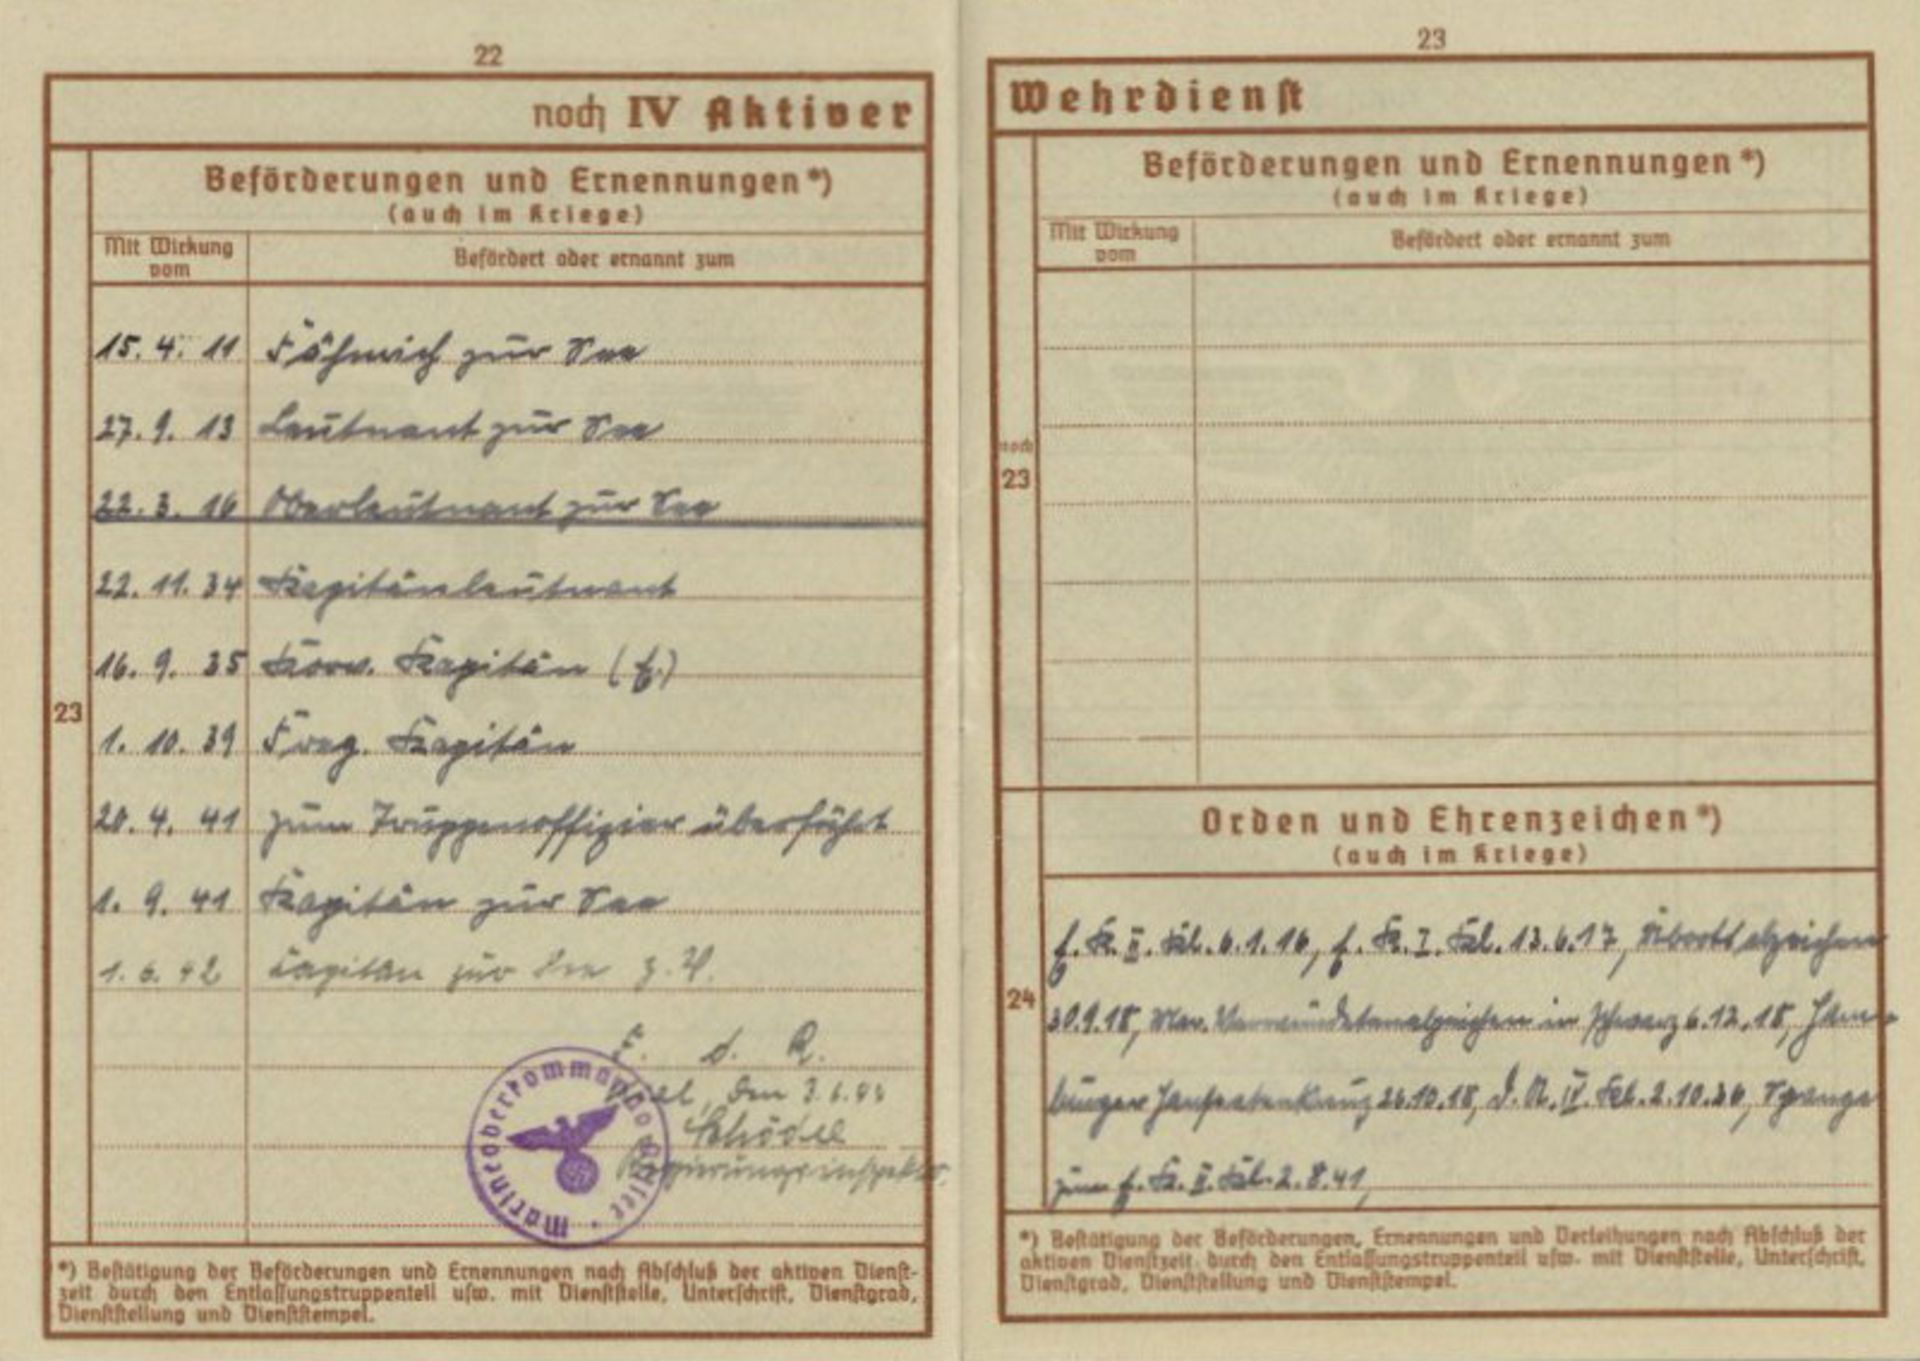 22
noch IV Aktiver
Beförderungen und Ernennungen*)
(auch im Kriege)
Mit Wirkung vom
Befördert oder ernannt zum
15. 4. 11 Fähnrich zur See
27. 9. 13 Leutnant zur See
22. 3. 16 Oberleutnant zur See
22. 11. 34 Kapitänleutnant
16. 9. 35 Korv. Kapitän (E.)
1. 10. 39 Freg. Kapitän
23
20. 4. 41 zum Truppenoffizier überführt
1. 9. 41 Kapitän zur See
1. 6. 42 Kapitän zur See z. V.
F. d. R.
Kiel, den 3.6.
Regierungsinspektor
Marineoberkommando Ostsee
*) Bestätigung der Beförderungen und Ernennungen nach Abschluß der aktiven Dienst-
zeit durch den Entlassungstruppenteil usw. mit Dienststelle, Unterschrift, Dienstgrad,
Dienststellung und Dienststempel.
23
Wehrdienst
Beförderungen und Ernennungen*)
(auch im Kriege)
Mit Wirkung vom
Befördert oder ernannt zum
noch
23
Orden und Ehrenzeichen*)
(auch im Kriege)
24
E. K. II. Kl. 6.1.16, E. K. I. Kl. 13.6.17, Ubootsabzeichen
30.9.18, Mar. Verwundetenabzeichen in schwarz 6.12.18, Ham-
burger Hanseatenkreuz 26.10.18, D. A. IV. Kl. 2.10.36, Spange
zum E. K. II. Kl. 2.8.41,
*) Bestätigung der Beförderungen, Ernennungen und Verleihungen nach Abschluß der
aktiven Dienstzeit durch den Entlassungstruppenteil usw. mit Dienststelle, Unterschrift,
Dienstgrad, Dienststellung und Dienststempel.